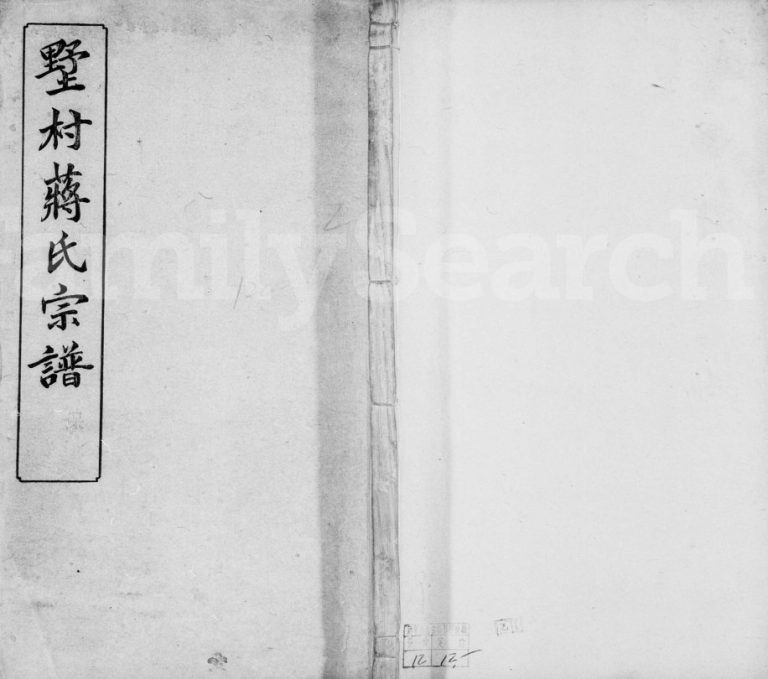 墅村蔣氏宗譜
FamilySearch
12 12